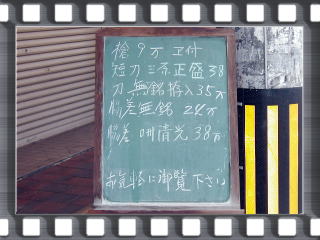 槍 9万 ヱ付
短刀 三原正盛 38
刀 無銘 拵入 35万
脇差 無銘 24万
脇差 清光 38万
お気軽に御覧下さい